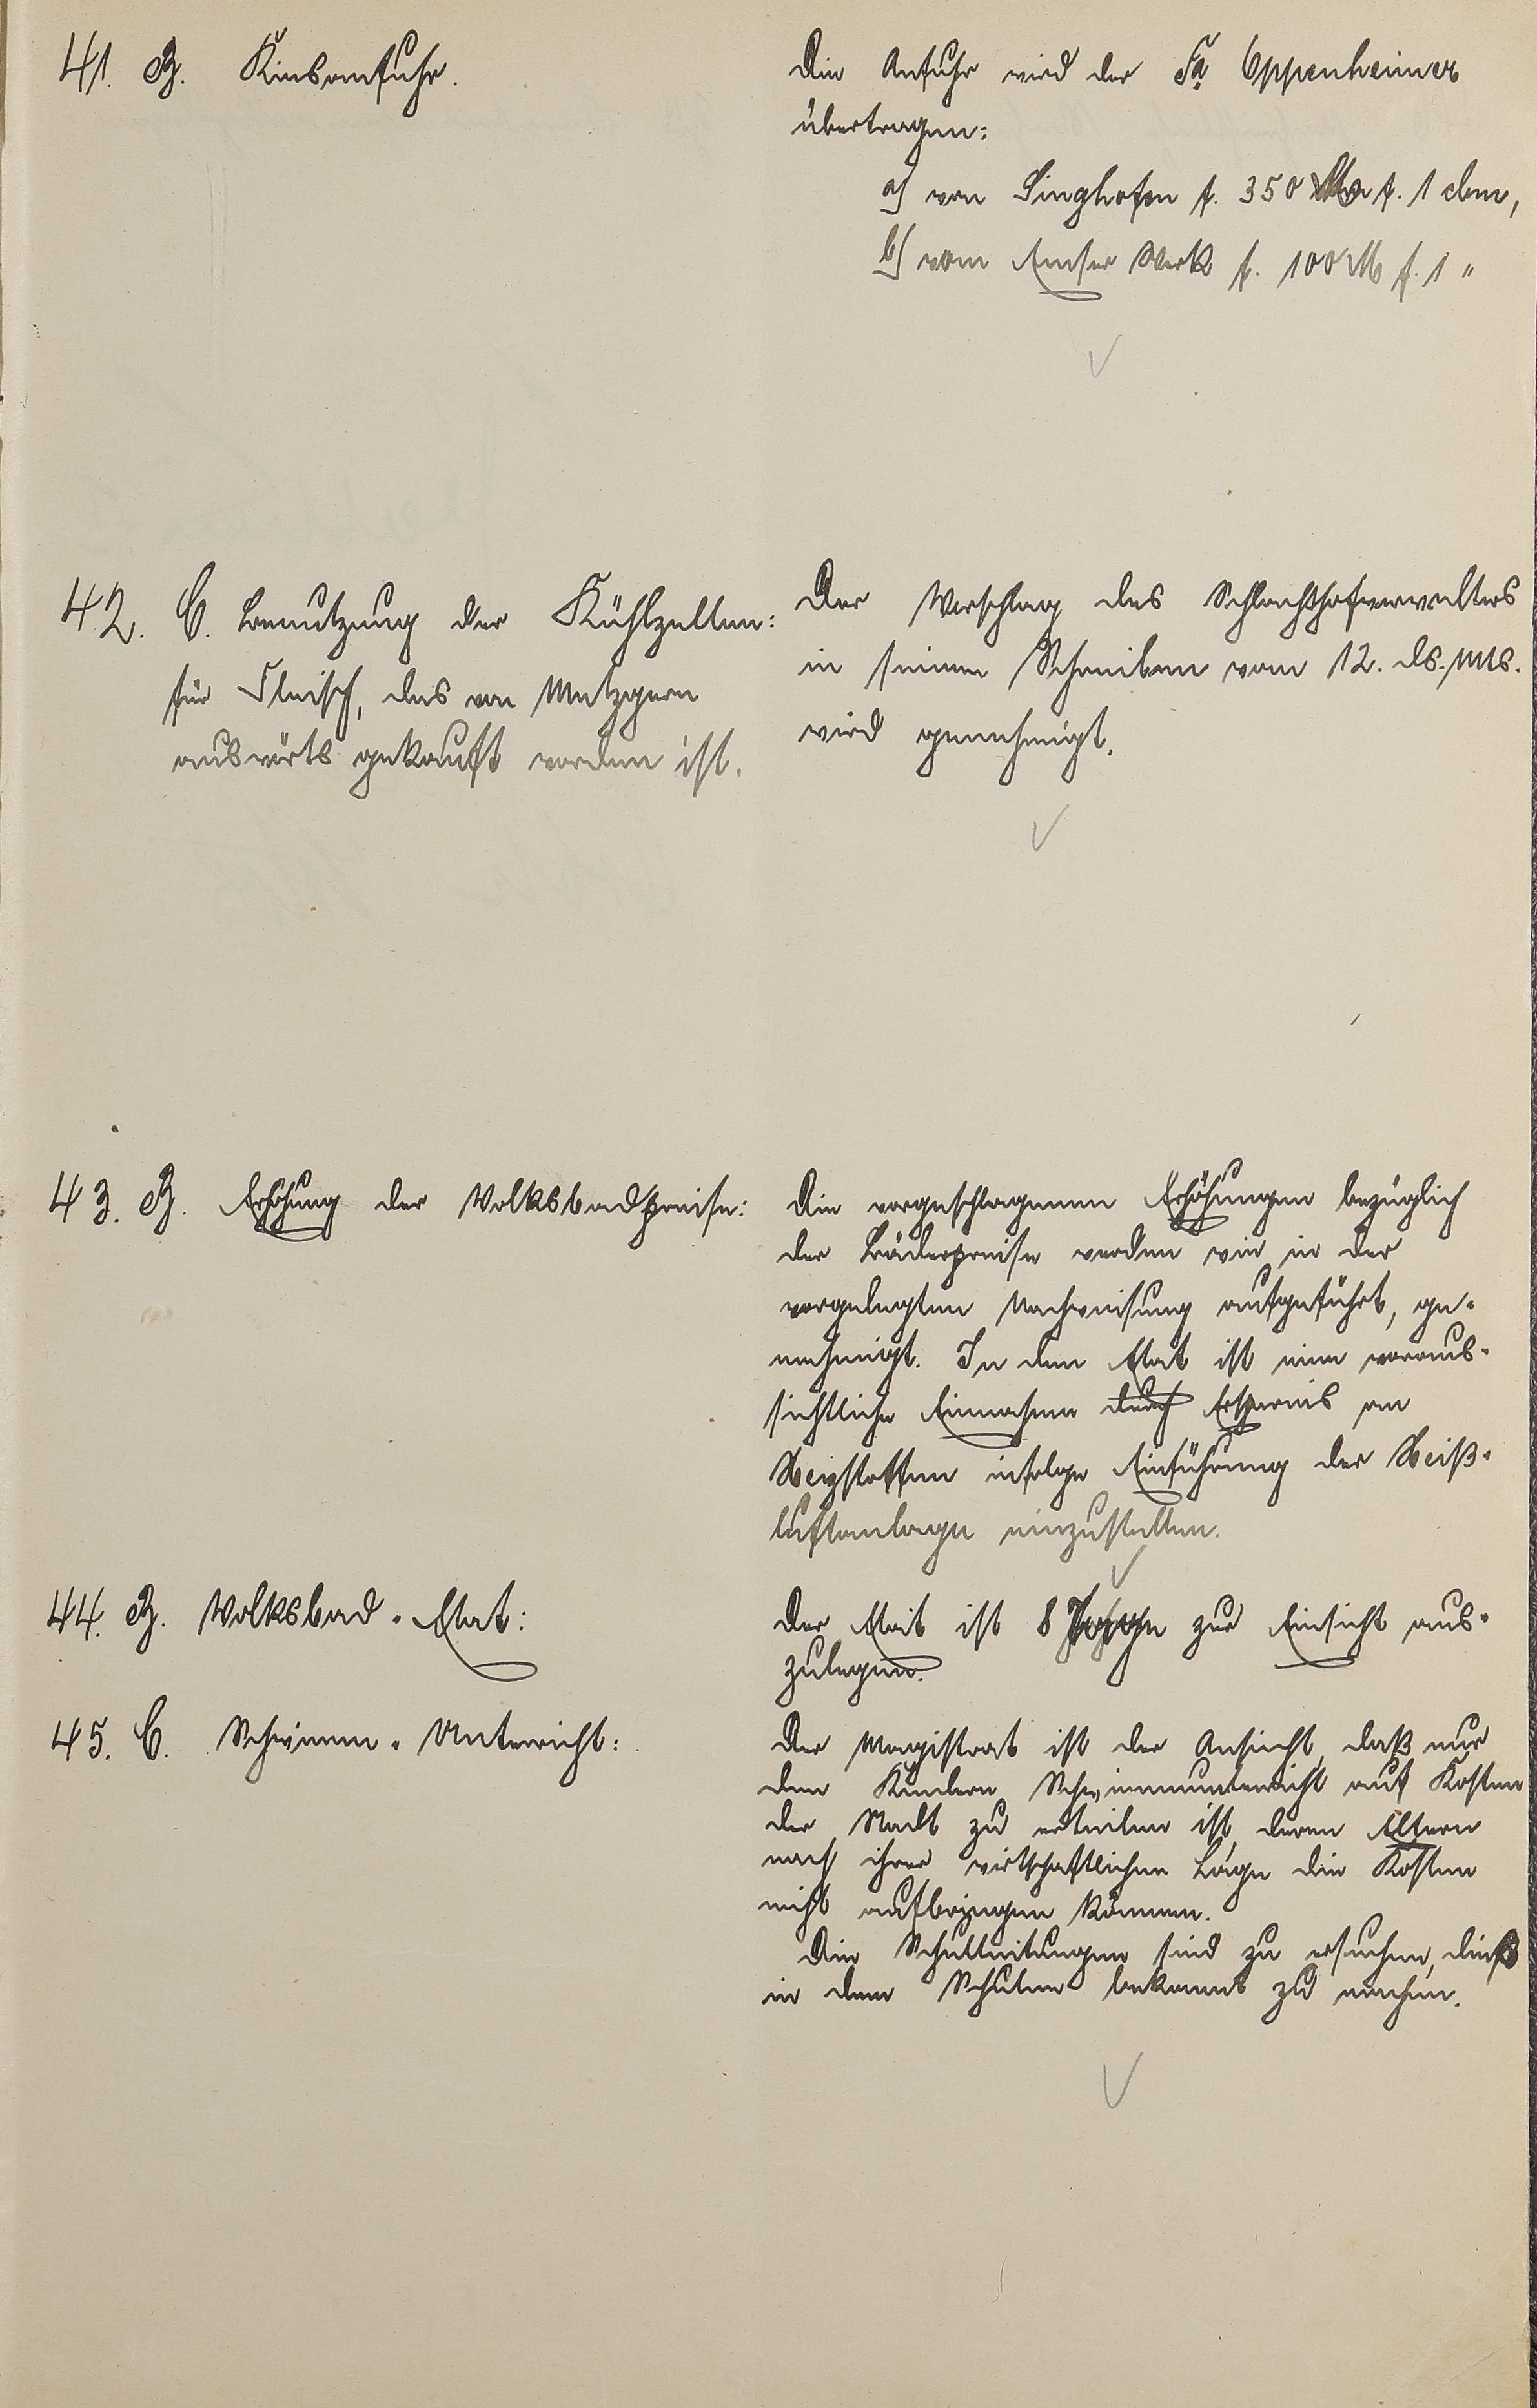 41. B. Kiesanfuhr.
Die Anfuhr wird der Fa Oppenheimer
übertragen:
a) von Singhofen f. 350 M f. 1 cbm,
b) vom Emser Werk f. 100 M f. 1 "
42. C. Benutzung der Kühlzellen:
für Fleisch, das von Metzgern
auswärts gekauft worden ist.
Der Vorschlag des Schlachthofverwalters
in seinem Schreiben vom 12. ds. Mts.
wird genehmigt.
43. B. Erhöhung der Volksbadpreise:
Die vorgeschlagenen Erhöhungen bezüglich
der Bäderpreise werden wie in der
vorgelegten Nachweisung aufgeführt, ge-
nehmigt. In den Etat ist eine voraus-
sichtliche Einnahme durch Ersparnis an
Heizstoffen infolge Einführung der Heiß-
luftanlage einzustellen.
44. B. Volksbad-Etat:
Der Etat ist 8 Tage zur Einsicht aus-
zulegen.
45. C. Schwimm-Unterricht:
Der Magistrat ist der Ansicht, daß nur
den Kindern Schwimmunterricht auf Kosten
der Stadt zu erteilen ist, deren Eltern
nach ihrer wirtschaftlichen Lage die Kosten
nicht aufbringen können.
Die Schulleitungen sind zu ersuchen, dieß
in den Schulen bekannt zu machen.